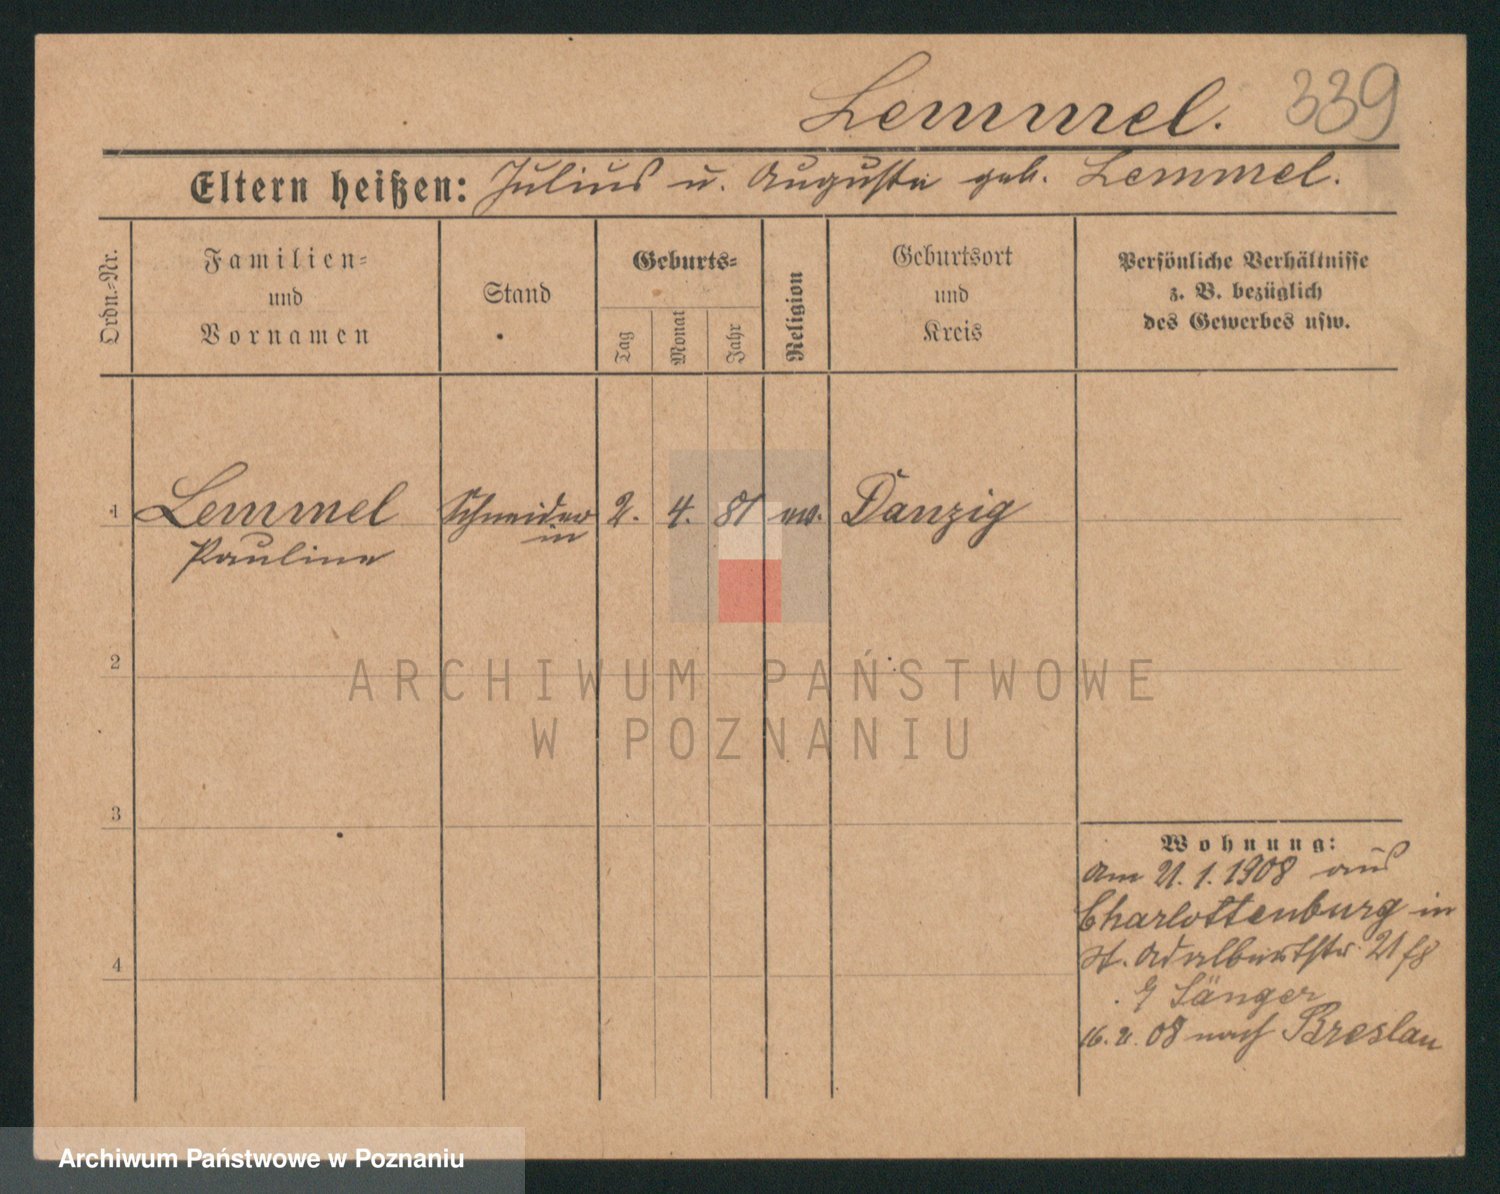 Lemmel. 339
Eltern heißen: Julius u. Auguste geb. Lemmel.
Ordn.-Nr.
Familien-
und
Vornamen
Stand
Geburts-
Tag
Monat
Jahr
Religion
Geburtsort
und
Kreis
Persönliche Verhältnisse
z. B. bezüglich
des Gewerbes usw.
1 Lemmel Schneider 2. 4. 81 ev. Danzig
in
Pauline
2
3
4
Wohnung:
Am 21. 1. 1908 aus
Charlottenburg in
St. Adalbertstr. 21
Sänger
16. 2. 08 nach Breslau
ARCHIWUM PAŃSTWOWE
W POZNANIU
Archiwum Państwowe w Poznaniu